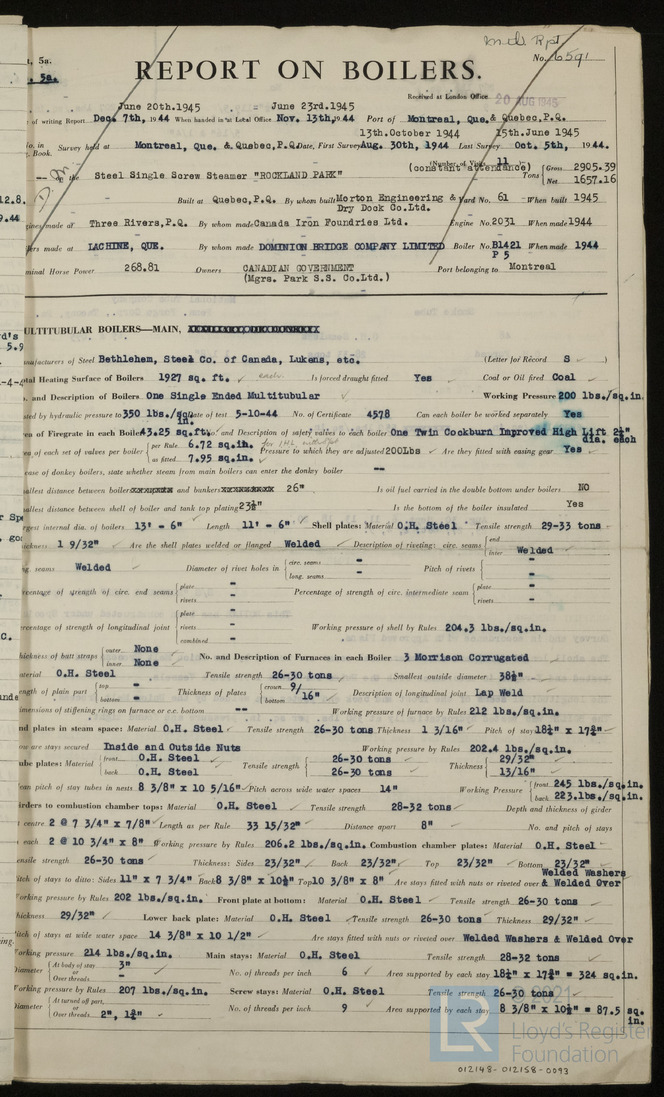 5a.
5a.
No. 6591
REPORT ON BOILERS.
Received at London Office 20 AUG 1945
June 20th.1945 June 23rd.1945
of writing Report Dec. 7th, 1944 When handed in at Local Office Nov. 13th, 1944 Port of Montreal, Que. & Quebec,P.Q.
13th.October 1944 15th.June 1945
Survey held at Montreal, Que. & Quebec,P.Q. Date, First Survey Aug. 30th, 1944 Last Survey Oct. 5th, 1944.
Book. (Number of Visits 11
(constant attendance)
the Steel Single Screw Steamer "ROCKLAND PARK" Tons Gross 2905.39
Net 1657.16
Built at Quebec, P.Q. By whom built Morton Engineering & Dry Dock Co.Ltd. Yard No. 61 When built 1945
made at Three Rivers,P.Q. By whom made Canada Iron Foundries Ltd. Engine No. 2031 When made 1944
made at LACHINE, QUE. By whom made DOMINION BRIDGE COMPANY LIMITED Boiler No. B1421 When made 1944
P 5
Horse Power 268.81 Owners CANADIAN GOVERNMENT Port belonging to Montreal
(Mgrs. Park S.S. Co.Ltd.)
ULTITUBULAR BOILERS—MAIN,
Manufacturers of Steel Bethlehem, Steel Co. of Canada, Lukens, etc. (Letter for Record S )
Total Heating Surface of Boilers 1927 sq. ft. each. Is forced draught fitted Yes Coal or Oil fired Coal
and Description of Boilers One Single Ended Multitubular Working Pressure 200 lbs./sq.in.
by hydraulic pressure to 350 lbs./sq.in. Date of test 5-10-44 No. of Certificate 4578 Can each boiler be worked separately Yes
of Firegrate in each Boiler 43.25 sq.ft. No. and Description of safety valves to each boiler One Twin Cockburn Improved High Lift 2½" dia. each
of each set of valves per boiler per Rule 6.72 sq.in.
as fitted 7.95 sq.in. Pressure to which they are adjusted 200lbs Are they fitted with easing gear Yes
case of donkey boilers, state whether steam from main boilers can enter the donkey boiler --
smallest distance between boilers and bunkers 26" Is oil fuel carried in the double bottom under boilers NO
smallest distance between shell of boiler and tank top plating 23½" Is the bottom of the boiler insulated Yes
Largest internal dia. of boilers 13' - 6" Length 11' - 6" Shell plates: Material O.H. Steel Tensile strength 29-33 tons
Thickness 1 9/32" Are the shell plates welded or flanged Welded Description of riveting: circ. seams end
inter Welded
seams Welded Diameter of rivet holes in circ. seams -
long. seams - Pitch of rivets -
-
percentage of strength of circ. end seams plate -
rivets - Percentage of strength of circ. intermediate seam plate -
rivets -
percentage of strength of longitudinal joint plate -
rivets -
combined - Working pressure of shell by Rules 204.3 lbs./sq.in.
thickness of butt straps outer None
inner None No. and Description of Furnaces in each Boiler 3 Morrison Corrugated
Material O.H. Steel Tensile strength 26-30 tons Smallest outside diameter 38½"
Length of plain part top -
bottom - Thickness of plates crown 9/16"
bottom Description of longitudinal joint Lap Weld
Dimensions of stiffening rings on furnace or c.c. bottom -- Working pressure of furnace by Rules 212 lbs./sq.in.
End plates in steam space: Material O.H. Steel Tensile strength 26-30 tons Thickness 1 3/16" Pitch of stays 18½" x 17½"
How are stays secured Inside and Outside Nuts Working pressure by Rules 202.4 lbs./sq.in.
Tube plates: Material front O.H. Steel
back O.H. Steel Tensile strength 26-30 tons
26-30 tons Thickness 29/32"
13/16"
Mean pitch of stay tubes in nests 8 3/8" x 10 5/16" Pitch across wide water spaces 14" Working Pressure front 245 lbs./sq.in.
back 223.lbs./sq.in.
Girders to combustion chamber tops: Material O.H. Steel Tensile strength 28-32 tons Depth and thickness of girder
centre 2 @ 7 3/4" x 7/8" Length as per Rule 33 15/32" Distance apart 8" No. and pitch of stays
each 2 @ 10 3/4" x 8" Working pressure by Rules 206.2 lbs./sq.in. Combustion chamber plates: Material O.H. Steel
Tensile strength 26-30 tons Thickness: Sides 23/32" Back 23/32" Top 23/32" Bottom 23/32"
Pitch of stays to ditto: Sides 11" x 7 3/4" Back 8 3/8" x 10½" Top 10 3/8" x 8" Are stays fitted with nuts or riveted over Welded Washers & Welded Over
Working pressure by Rules 202 lbs./sq.in. Front plate at bottom: Material O.H. Steel Tensile strength 26-30 tons
Thickness 29/32" Lower back plate: Material O.H. Steel Tensile strength 26-30 tons Thickness 29/32"
Pitch of stays at wide water space 14 3/8" x 10 1/2" Are stays fitted with nuts or riveted over Welded Washers & Welded Over
Working pressure 214 lbs./sq.in. Main stays: Material O.H. Steel Tensile strength 28-32 tons
Diameter At body of stay 3"
or
Over threads - No. of threads per inch 6 Area supported by each stay 18½" x 17½" = 324 sq.in.
Working pressure by Rules 207 lbs./sq.in. Screw stays: Material O.H. Steel Tensile strength 26-30 tons
Diameter At turned off part,
or
Over threads 2", 1¾" No. of threads per inch 9 Area supported by each stay 8 3/8" x 10½" = 87.5 sq.in.
2021
LR Lloyd's Register
Foundation
012148-012158-0093